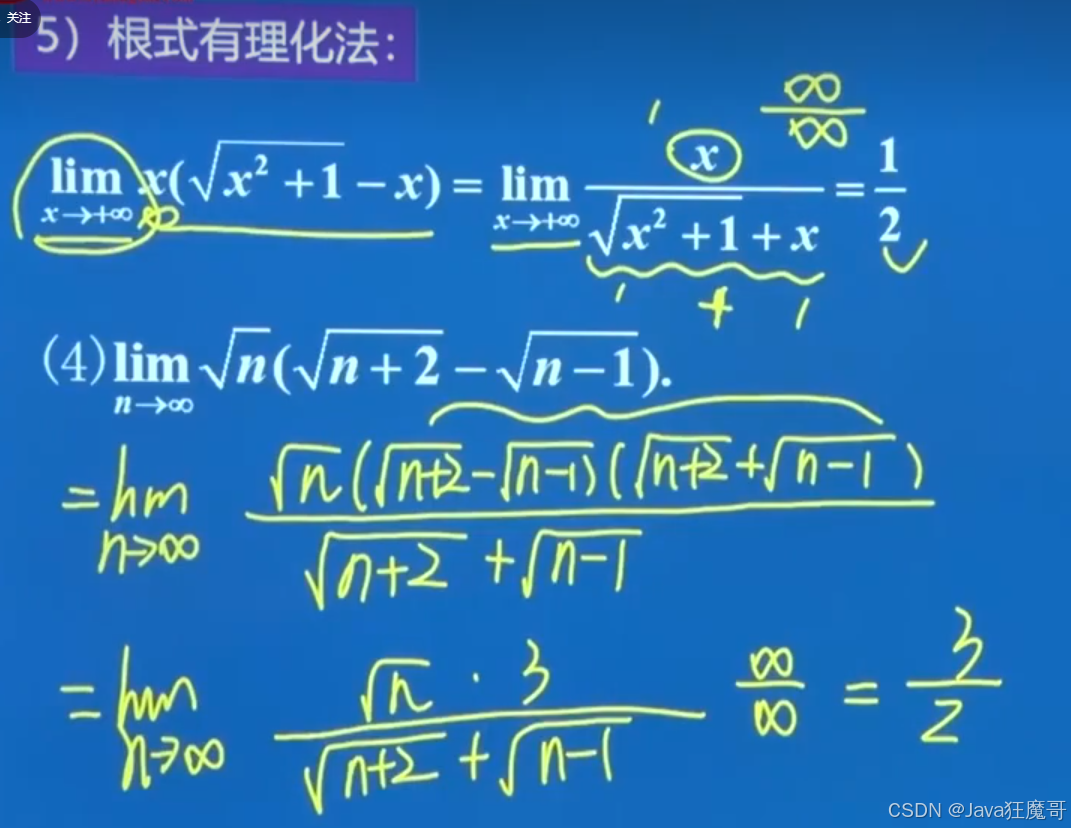 关注
5）根式有理化法：
lim x→+∞ x(√(x² + 1) − x) = lim x→+∞ x / (√(x² + 1) + x) = 1/2
∞/∞
1
∞
1 + 1
(4) lim n→∞ √n(√(n + 2) − √(n − 1)).
= lim n→∞ √n(√(n+2) − √(n−1))(√(n+2) + √(n−1)) / (√(n+2) + √(n−1))
= lim n→∞ √n · 3 / (√(n+2) + √(n−1)) ∞/∞ = 3/2
CSDN @Java狂魔哥